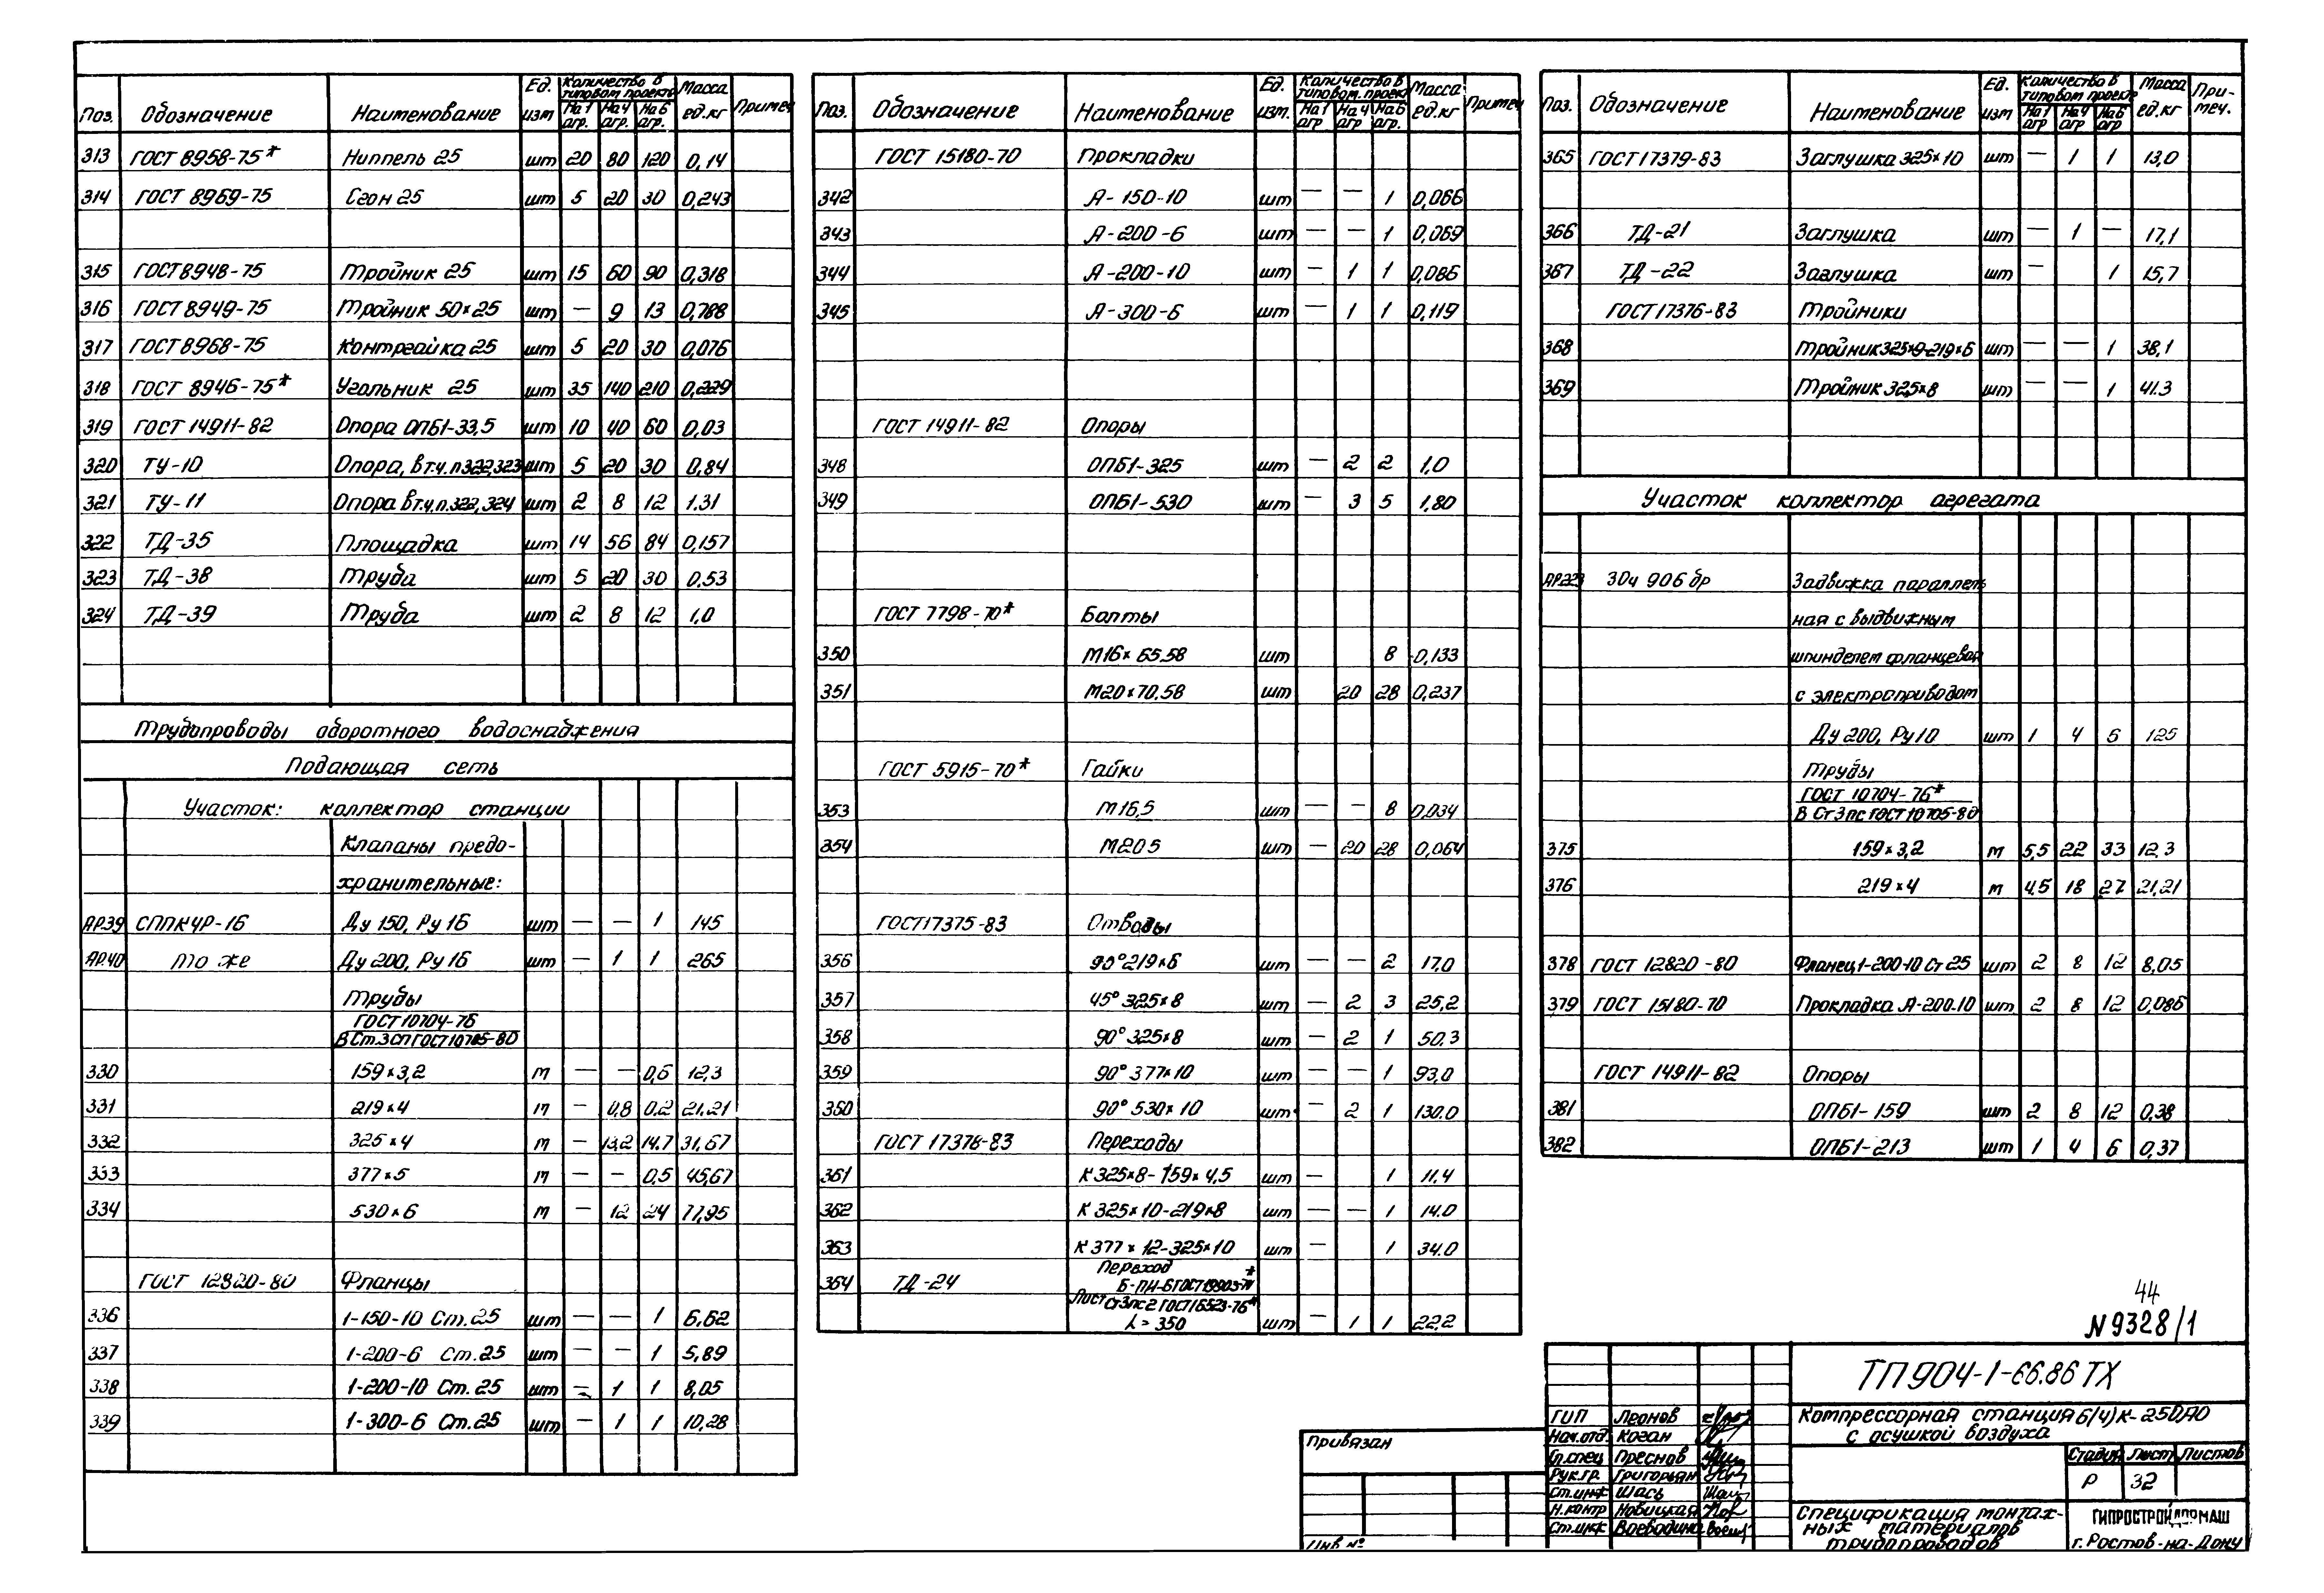 Поз. Обозначение Наименование Ед. изм Количество в типовом проекте На 1 агр. На 4 агр. На 6 агр. Масса ед.кг Примеч
313 ГОСТ 8958-75* Ниппель 25 шт 20 80 120 0,14
314 ГОСТ 8969-75 Сгон 25 шт 5 20 30 0,243
315 ГОСТ 8948-75 Тройник 25 шт 15 60 90 0,318
316 ГОСТ 8949-75 Тройник 50×25 шт — 9 13 0,788
317 ГОСТ 8968-75 Контргайка 25 шт 5 20 30 0,076
318 ГОСТ 8946-75* Угольник 25 шт 35 140 210 0,229
319 ГОСТ 14911-82 Опора ОПБ1-33,5 шт 10 40 60 0,03
320 ТУ-10 Опора, в т.ч. п.322,323 шт 5 20 30 0,84
321 ТУ-11 Опора в т.ч. п.322, 324 шт 2 8 12 1.31
322 ТД-35 Площадка шт 14 56 84 0,157
323 ТД-38 Труба шт 5 20 30 0.53
324 ТД-39 Труба шт 2 8 12 1,0
Трубопроводы оборотного водоснабжения
Подающая сеть
Участок: коллектор станции
Клапаны предо-
хранительные:
АР.39 СППК4Р-16 Ду 150, Ру 16 шт — — 1 145
АР.40 то же Ду 200, Ру 16 шт — 1 1 265
Трубы
ГОСТ 10704-76
В Ст.3сп ГОСТ 10705-80
330 159×3,2 м — — 0,6 12,3
331 219×4 м — 0,8 0,2 21.21
332 325×4 м — 13,2 14.7 31,67
333 377×5 м — — 0,5 45,67
334 530×6 м — 12 24 77,95
ГОСТ 12820-80 Фланцы
336 1-150-10 Ст.25 шт — — 1 6,62
337 1-200-6 Ст.25 шт — — 1 5,89
338 1-200-10 Ст.25 шт — 1 1 8,05
339 1-300-6 Ст.25 шт — 1 1 10,28
Поз. Обозначение Наименование Ед. изм. Количество в типовом. проекте На 1 агр На 4 агр На 6 агр. Масса ед.кг Примеч
ГОСТ 15180-70 Прокладки
342 А-150-10 шт — — 1 0,066
343 А-200-6 шт — — 1 0,069
344 А-200-10 шт — 1 1 0,086
345 А-300-6 шт — 1 1 0,119
ГОСТ 14911-82 Опоры
348 ОПБ1-325 шт — 2 2 1,0
349 ОПБ1-530 шт — 3 5 1,80
ГОСТ 7798-70* Болты
350 М16×65.58 шт 8 0,133
351 М20×70.58 шт 20 28 0,237
ГОСТ 5915-70* Гайки
353 М16,5 шт — — 8 0,034
354 М20 5 шт — 20 28 0,064
ГОСТ 17375-83 Отводы
356 90° 219×6 шт — — 2 17,0
357 45° 325×8 шт — 2 3 25,2
358 90° 325×8 шт — 2 1 50.3
359 90° 377×10 шт — — 1 93,0
360 90° 530×10 шт — 2 1 130.0
ГОСТ 17378-83 Переходы
361 К 325×8-159×4,5 шт — 1 11.4
362 К 325×10-219×8 шт — — 1 14.0
363 К 377×12-325×10 шт — 1 34.0
364 ТД-24 Переход
Б-ПН-6 ГОСТ 19903-74*
Лист Ст3пс2 ГОСТ 16523-76*
L = 350 шт — 1 1 22.2
Поз. Обозначение Наименование Ед. изм Количество в типовом проекте На 1 агр На 4 агр На 6 агр Масса ед.кг При-меч.
365 ГОСТ 17379-83 Заглушка 325×10 шт — 1 1 13,0
366 ТД-21 Заглушка шт — 1 — 17,1
367 ТД-22 Заглушка шт — 1 15,7
ГОСТ 17376-83 Тройники
368 Тройник 325×9-219×6 шт — — 1 38,1
369 Тройник 325×8 шт — — 1 41.3
Участок коллектор агрегата
АР.223 30ч 906 бр Задвижка параллель
ная с выдвижным
шпинделем фланцевая
с электроприводом
Ду 200, Ру 10 шт 1 4 6 125
Трубы
ГОСТ 10704-76*
В Ст3пс ГОСТ 10705-80
375 159×3,2 м 5,5 22 33 12,3
376 219×4 м 4,5 18 27 21,21
378 ГОСТ 12820-80 Фланец 1-200-10 Ст 25 шт 2 8 12 8,05
379 ГОСТ 15180-70 Прокладка А-200-10 шт 2 8 12 0,086
ГОСТ 14911-82 Опоры
381 ОПБ1-159 шт 2 8 12 0,38
382 ОПБ1-213 шт 1 4 6 0,37
44
N 9328/1
ТП 904-1-66.86 ТХ
Компрессорная станция 6(4)К-250АО
с осушкой воздуха
Стадия Лист Листов
Р 32
Спецификация монтаж-
ных материалов
трубопроводов
ГИПРОСТРОЙДОРМАШ
г. Ростов-на-Дону
ГИП Леонов
Нач.отд. Коган
Гл.спец Преснов
Рук.гр. Григорьян
Ст.инж Шась
Н.контр Новицкая
Ст.инж Воеводина
Привязан
Инв №